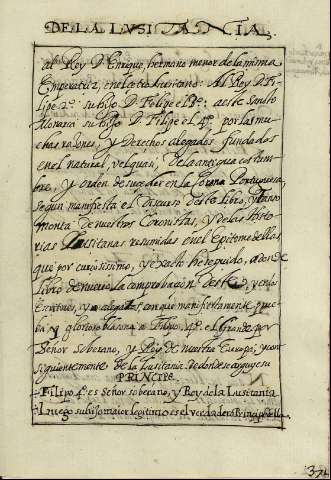 DE LA LVSITANIA.
al Rey D. Enrique, hermano menor de la misma
Emperatriz, en la otro lusitano: Al Rey D. Fi-
lipe 2º su hijo D. Felipe el 3º: a este Santo
Monarca su hijo D. Filipe el 4º, por las mu-
chas razones, y Derechos alegados fundados
en el natural, de la antigua costum-
bre, y orden de suceder en la Corona Portuguesa,
segun manifiesta el Discurso deste Libro, y
monta de nuestros Coronistas, y de las Histo-
rias Lusitanas resumidas en el Epitome dellas
que por curiosissimo, y he seguido, a donde
Libro de nuevo la comprobacion deste y en los
Escritores, ya alegados, con que manifiestamente prue-
ba y glorioso blasona a Filipo 4º el Grande por
Señor Soberano, y Rey de nuestra Europa; y con-
siguientemente de la Lusitania. de donde se arguye su
PRINCIPE.
Filipo 4º es Señor soberano, y Rey de la Lusitania
Luego su hijo maior legitimo es el verdadero Principe della
374